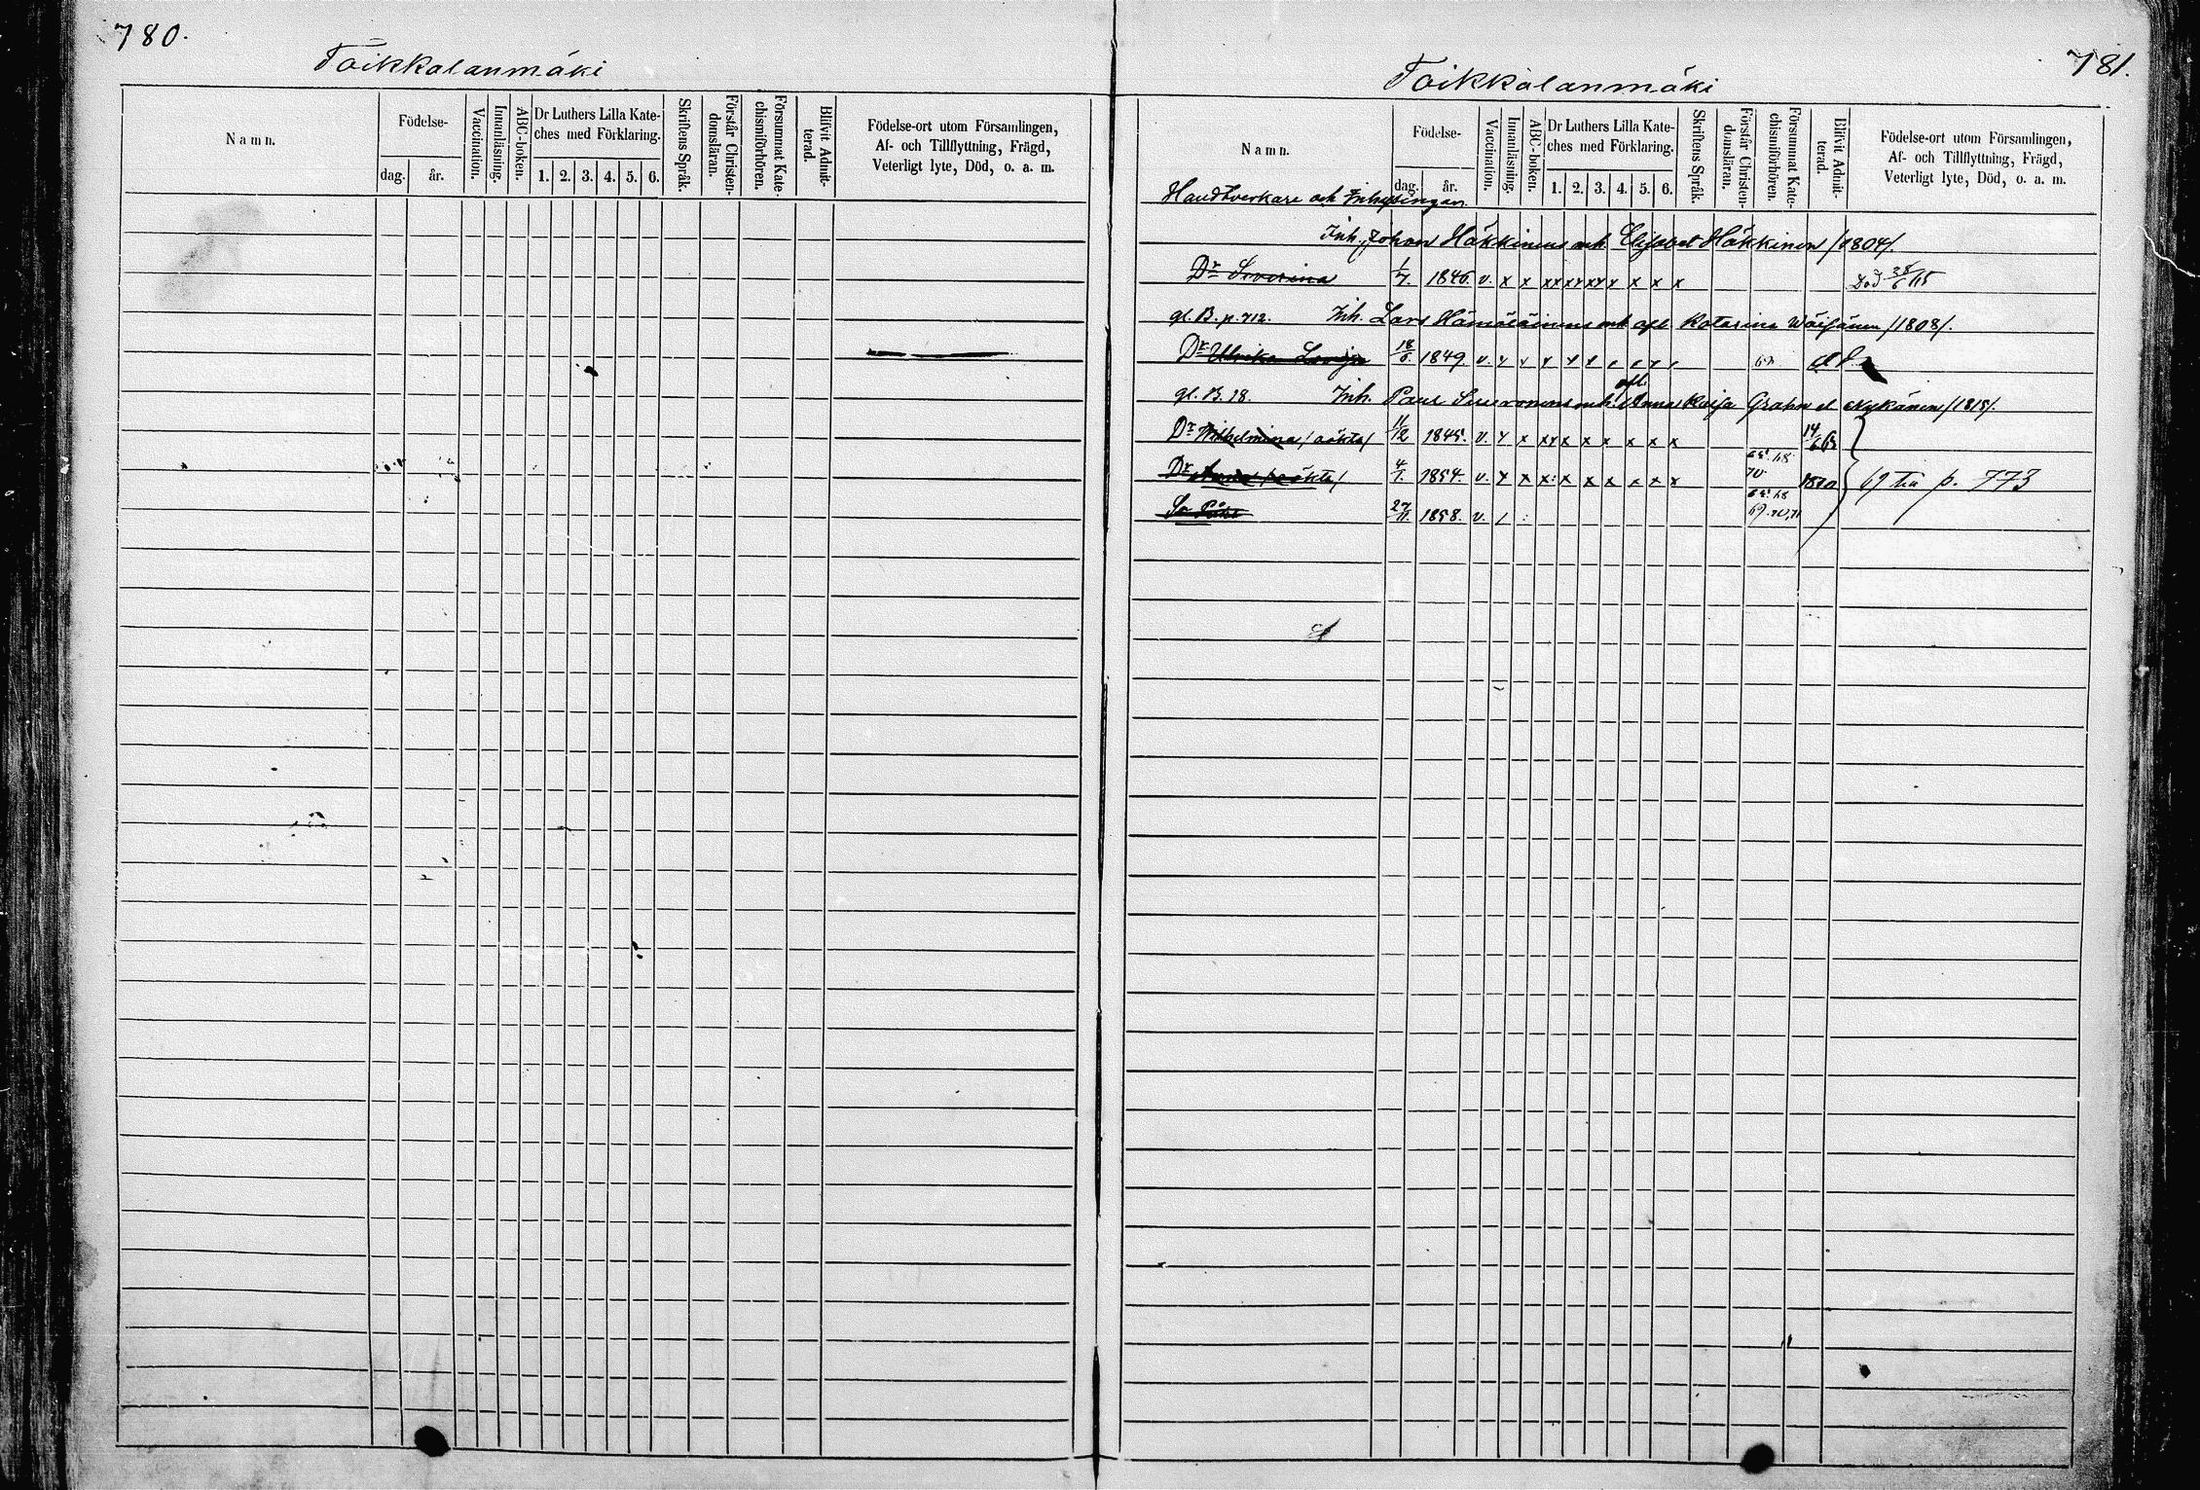 780.
Toikkalanmäki
Namn.
Födelse-
dag.
år.
Vaccination.
Innanläsning.
ABC-boken.
Dr Luthers Lilla Kate-
ches med Förklaring.
1. 2. 3. 4. 5. 6.
Skriftens Språk.
Förstår Christen-
domsläran.
Försummat Kate-
chismiförhören.
Blifvit Admit-
terad.
Födelse-ort utom Församlingen,
Af- och Tillflyttning, Frägd,
Veterligt lyte, Död, o. a. m.
781.
Toikkalanmäki
Namn.
Födelse-
dag.
år.
Vaccination.
Innanläsning.
ABC-boken.
Dr Luthers Lilla Kate-
ches med Förklaring.
1. 2. 3. 4. 5. 6.
Skriftens Språk.
Förstår Christen-
domsläran.
Försummat Kate-
chismiförhören.
Blifvit Admit-
terad.
Födelse-ort utom Församlingen,
Af- och Tillflyttning, Frägd,
Veterligt lyte, Död, o. a. m.
Handtverkare och Inhysingar
Inh. Johan Häkkinens och Elisabet Häkkinen /1804/.
Dr Severina 1/7. 1846. v. x x xx xx xx x x x x Död
gl. B. p. 712. Inh. Lars Hämäläinens och afl Katarina Wäisänen /1808/.
Dr Ulrika Lovisa 18/6. 1849. v.
gl. B. 28. Inh. Paul Suuronens och afl. Anna Kaisa Grahn el Nykänen /1818/.
Dr Wilhelmina /oäkta/ 11/12 1845. v. x x xx x x x x x x 14/6 65
Dr Anna /oäkta/ 4/1. 1854. v. x x x x x x x x x 70 1870 69 till p. 773
So 27/11. 1858. v. / 69. 70, 71